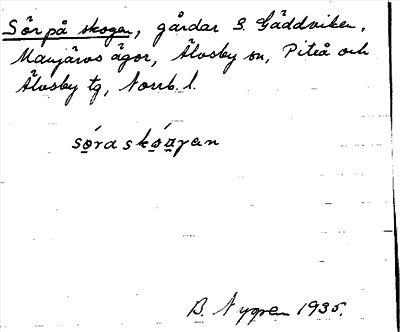 Sör på skogen, gårdar S. Gäddviken,
Manjärvs ägor, Älvsby sn, Piteå och
Älvsby tg, Norrb. l.
sǫ́ra skǫ́gan
B. Nygren 1935.